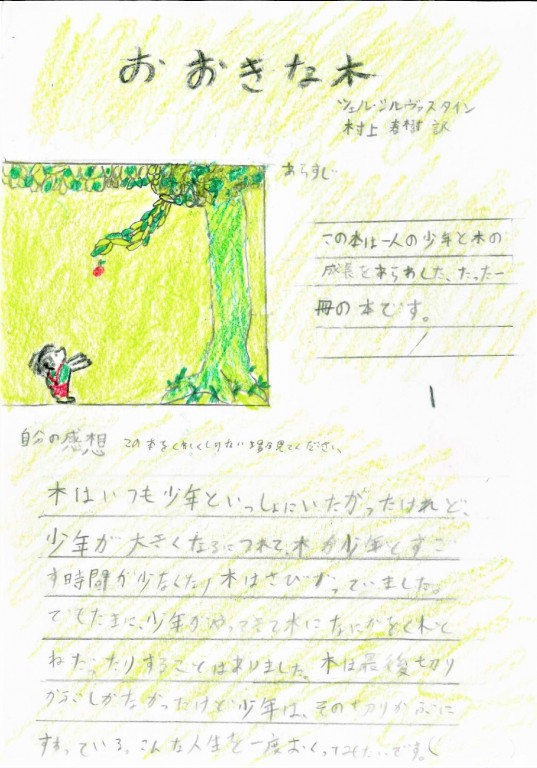 おおきな木
シェル・シルヴァスタイン
村上春樹訳
あらすじ
この本は一人の少年と木の
成長をあらわした、たった一
冊の本です。
自分の感想
この本をくわしくしりたい場合見てください。
木はいつも少年といっしょにいたがったけれど、
少年が大きくなるにつれて、木が少年とすご
す時間が少なくなり木はさびがっていました。
でもたまに、少年がやってきて木になにかをくれと
ねだったりすることはありました。木は最後切り
かぶしかなかったけど少年は、その切りかぶに
すわっている。こんな人生を一度おくってみたいです。